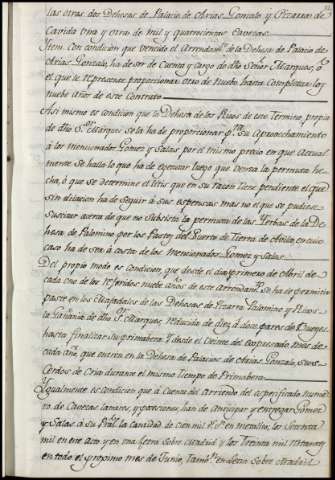 las otras dos Dehesas de Palacio de Obrias Gonzalo y Pizarra de
Cavida una y otra de mil y quatrocientas Cavezas
Item. Con condicion que vencido el Arrendam.to de la Dehesa de Palacio de
Obrias Gonzalo, ha de ser de Cuenta y Cargo de dho Señor Marques, ó
el que le represente proporcionar otro de nuebo hasta Completar los
nuebe años de este Contrato
Asi mismo es condicion que la Dehesa de los Ruos de este Termino, propio
de dho S.r Marques se la ha de proporcionar p.a su Aprovechamiento
à los mencionados Gomez y Salas, por el mismo precio en que actual
mente se halla lo que ha de egecutar luego que venza la permuta he
cha, ó que se determine el litis que en su razon tiene pendiente el que
sin dilacion ha de seguir à sus espensas mas no el que se pudiese
suscitar acerca de que no subsista la permuta de las Yerbas de la De
hesa de Palomino por los Pactos del Puerto de Tierra de Avila en cuio
caso ha de ser à costa de los mencionados Gomez y Salas
Del propio modo es condicion que desde el dia primero de Abril de
cada uno de los referidos nuebe años de este arrendam.to se ha de permitir
paste en los Majadales de las Dehesas de Pizarra Palomino y Ruos
la Labanza de dho S.r Marques, reducida de diez à doze pares de Bueyes
hasta finalizar su primabera. Y desde el Veinte del expresado Abril de
cada año que entren en la Dehesa de Palacio de Obrias Gonzalo, sus
Cerdos de Cria durante el mismo tiempo de Primabera
Ygualmente es condicion que à cuenta del arriendo del especificado nume
ro de Cavezas lanares, y porciones, han de anticipar y entregar Gomez
y Salas à su S.ria la cantidad de cien mil r.s v.n en metalico, los Setenta
mil en este acto y en una letra sobre Madrid y los Treinta mil restantes
en todo el proximo mes de Junio, tamb.n en letra sobre Madrid